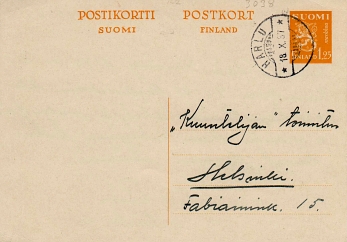 POSTIKORTTI
SUOMI
POSTKORT
FINLAND
SUOMI
FINLAND 1.25
HARLU
18.X.37
„Kuuntelijan" toimitus
Helsinki.
Fabianink. 15.